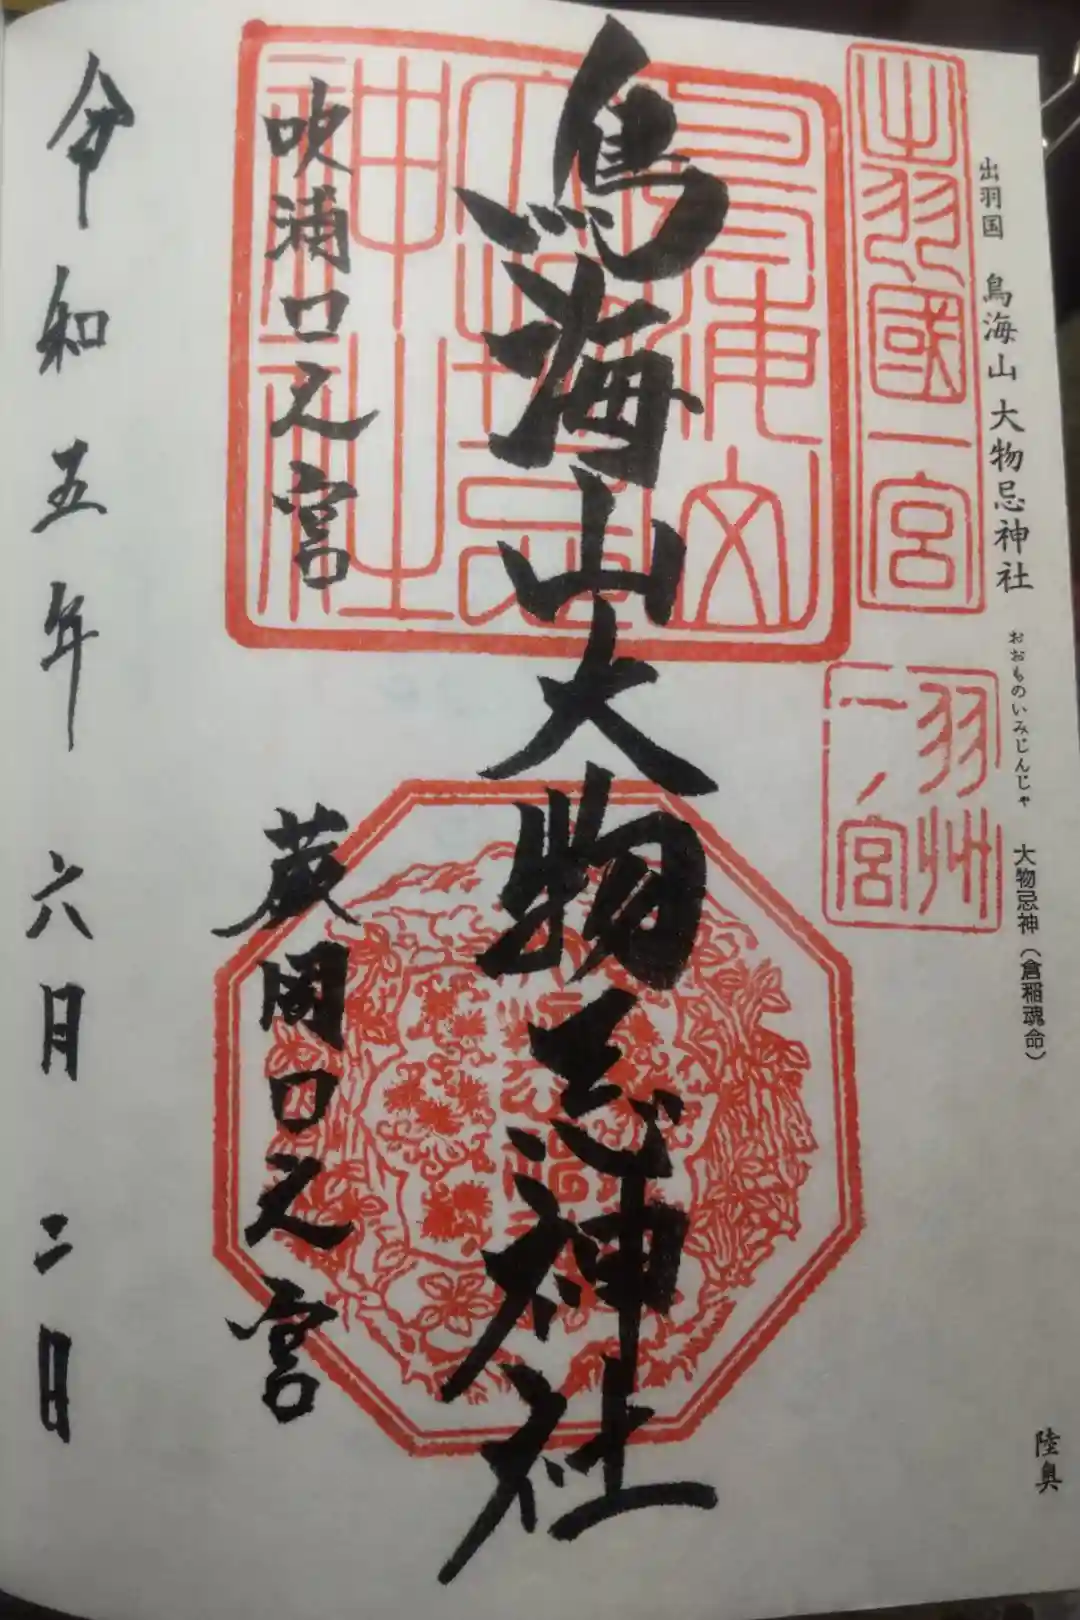 出羽国 鳥海山大物忌神社 おおものいみじんじゃ 大物忌神(倉稲魂命)
陸奥
出羽國一宮
羽州
一ノ宮
鳥海山大物忌神社
吹浦口之宮
蕨岡口之宮
令和五年六月二日